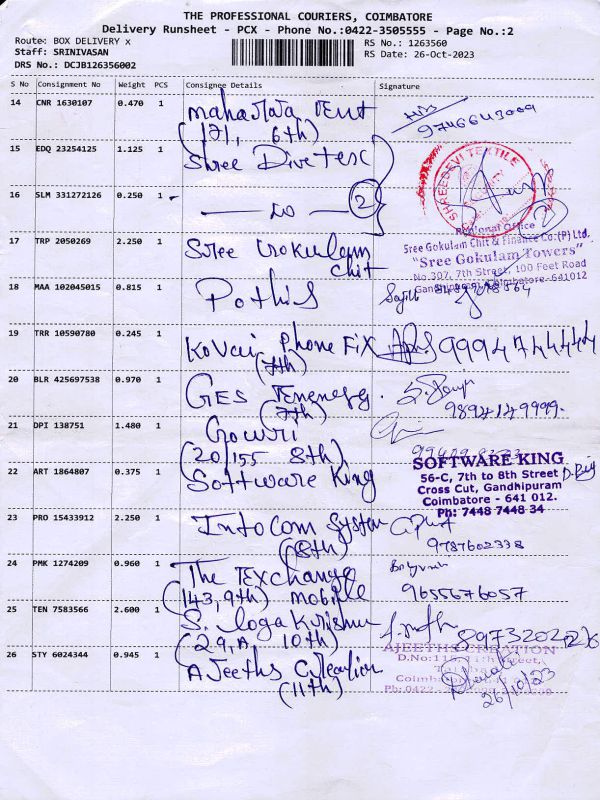 THE PROFESSIONAL COURIERS, COIMBATORE
Delivery Runsheet - PCX - Phone No.:0422-3505555 - Page No.:2
Route: BOX DELIVERY x
RS No.: 1263560
Staff: SRINIVASAN
RS Date: 26-Oct-2023
DRS No.: DCJB126356002
S No Consignment No Weight PCS Consignee Details Signature
14 CNR 1630107 0.470 1
(171, 6th) 9746643009
15 EDQ 23254125 1.125 1 Shree Divetesc
SHREEDEVI TEXTILE
16 SLM 331272126 0.250 1 — DO — 2
Regional Office
17 TRP 2050269 2.250 1 Sree Gokulam
Chit
Sree Gokulam Chit & Finance Co.(P) Ltd,
"Sree Gokulam Towers"
No.307, 7th Street, 100 Feet Road
Gandhipuram, Coimbatore-641012
18 MAA 102045015 0.815 1 Pothis
19 TRR 10590780 0.245 1 Kovai Phone Fix 9994744444
(7th)
20 BLR 425697538 0.970 1 GES
(7th) 9894149999.
21 DPI 138751 1.480 1 Gowri
(20/155 8th)
22 ART 1864807 0.375 1 Software King
SOFTWARE KING
56-C, 7th to 8th Street
Cross Cut, Gandhipuram
Coimbatore - 641 012.
Ph: 7448 7448 34
23 PRO 15433912 2.250 1 Intocom System
(8th) 9787602338
24 PMK 1274209 0.960 1 The Texchange
(143, 9th) mobile 9655676057
25 TEN 7583566 2.600 1 S. Loga Krishna
(29, A, 10th)
26 STY 6024344 0.945 1 AJeeths Creation
(11th)
AJEETHS CREATION
26/10/23